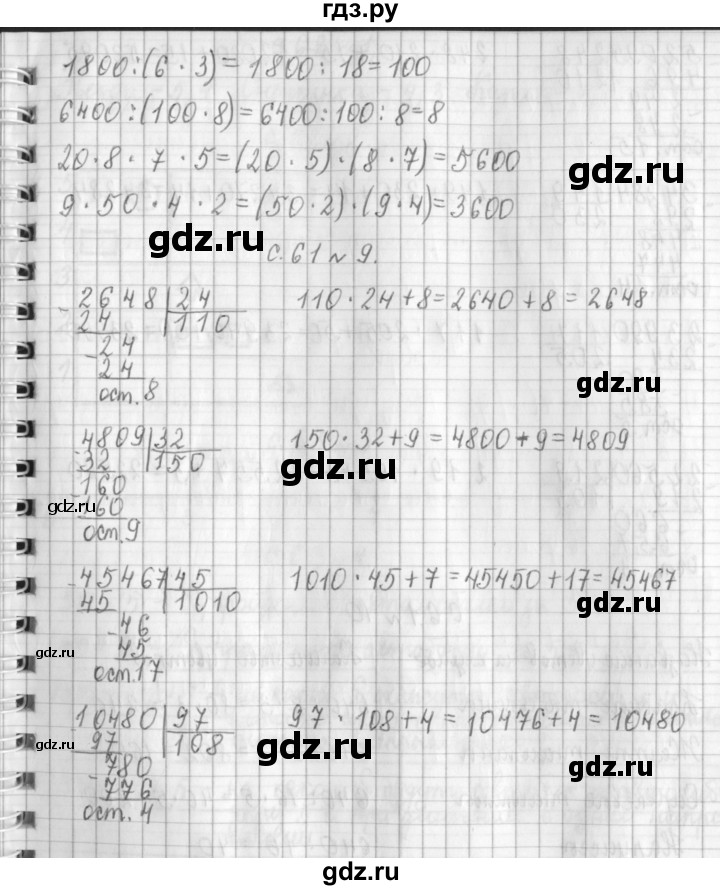 гдз.ру
1800:(6·3)=1800:18=100
6400:(100·8)=6400:100:8=8
20·8·7·5=(20·5)·(8·7)=5600
gdz.ru
9·50·4·2=(50·2)·(9·4)=3600
gdz.ru
с.61 № 9.
2648|24 110·24+8=2640+8=2648
24 110
24
24
gdz.ru
ост.8
4809|32 150·32+9=4800+9=4809
32 150
gdz.ru
160
160
gdz.ru
ост.9
45467|45 1010·45+7=45450+17=45467
45 1010
gdz.ru
46
45
gdz.ru
ост.17
10480|97 97·108+4=10476+4=10480
97 108
gdz.ru
gdz.ru
780
gdz.ru
776
ост. 4
gdz.ru